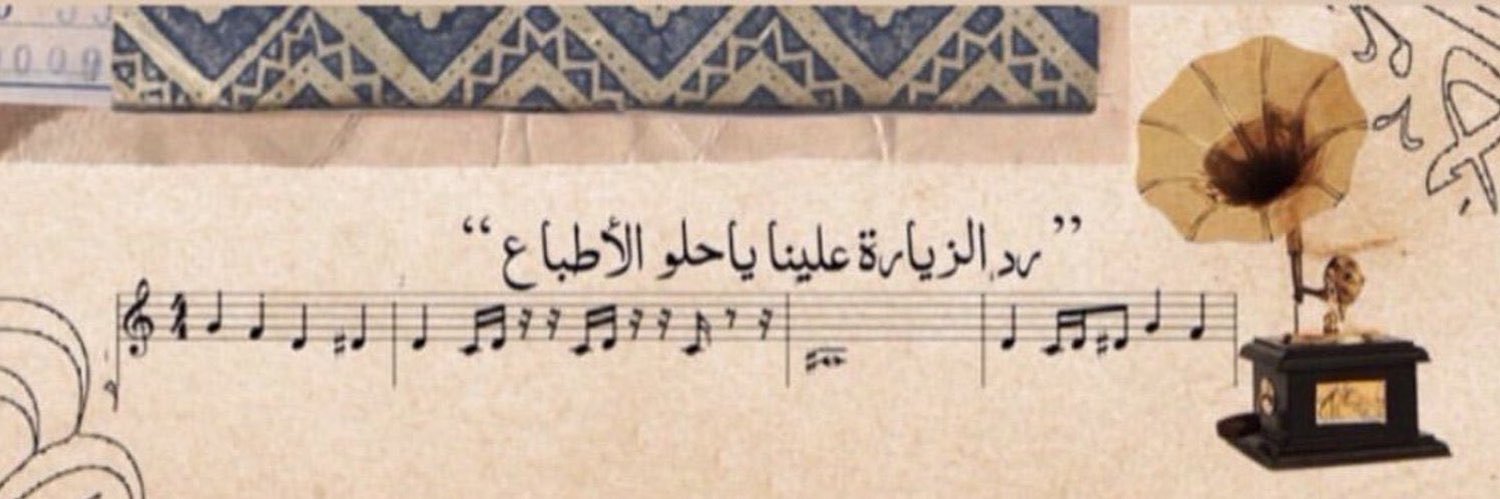 ” رد الزيارة علينا ياحلو الأطباع “